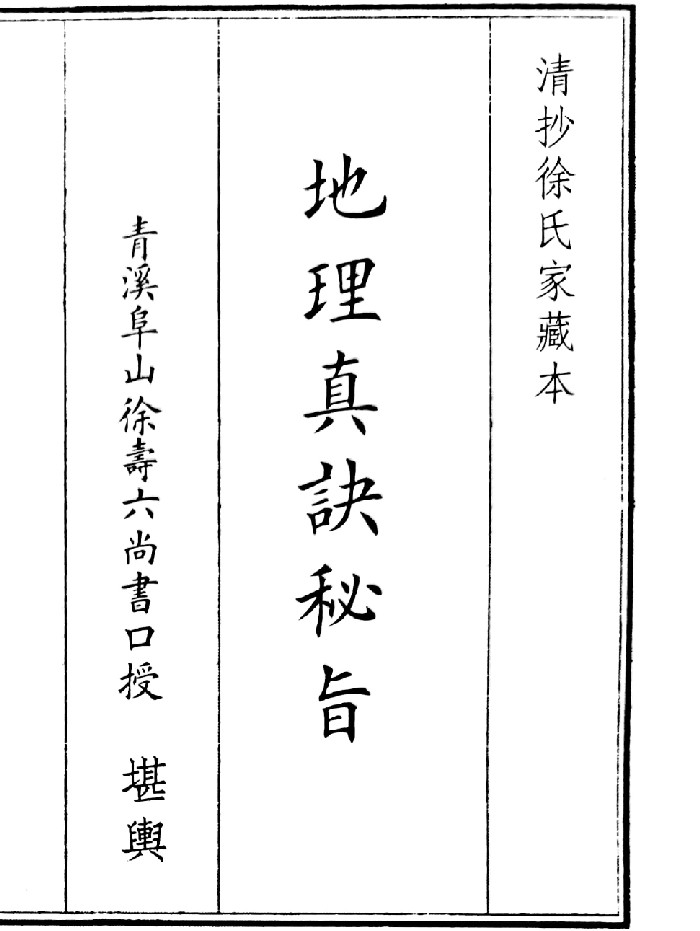 清抄徐氏家藏本
地理真訣秘旨
青溪阜山徐壽六尚書口授 堪輿